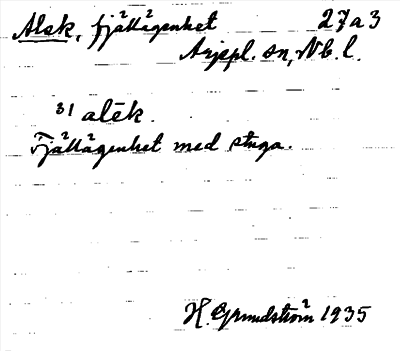 Alsk, fjällägenhet 27a3
Arjepl. sn, Nb. l.
31 alēk.
Fjällägenhet med stuga.
H. Grundström 1935